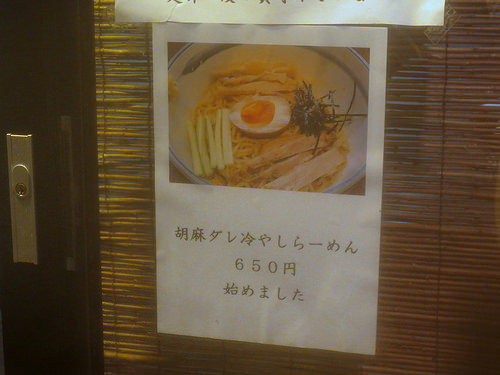 胡麻ダレ冷やしらーめん
６５０円
始めました